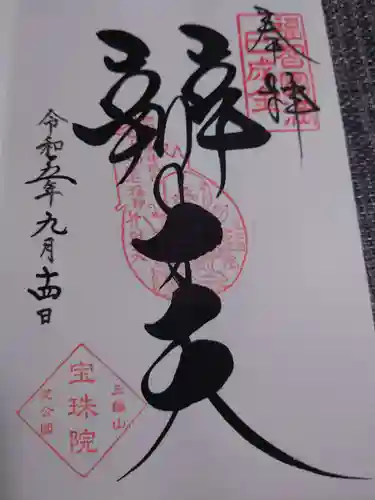 奉拝
辨才天
令和五年九月十四日
三縁山
宝珠院
芝公園